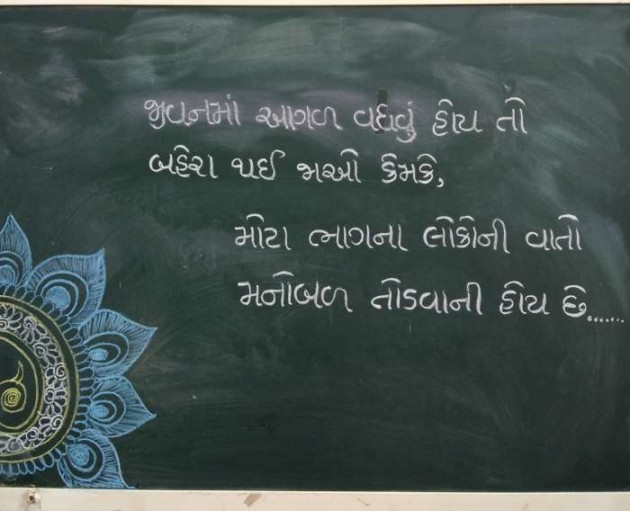 જીવનમાં આગળ વધવું હોય તો
બહેરા થઈ જાઓ કેમકે,
મોટા ભાગના લોકોની વાતો
મનોબળ તોડવાની હોય છે......